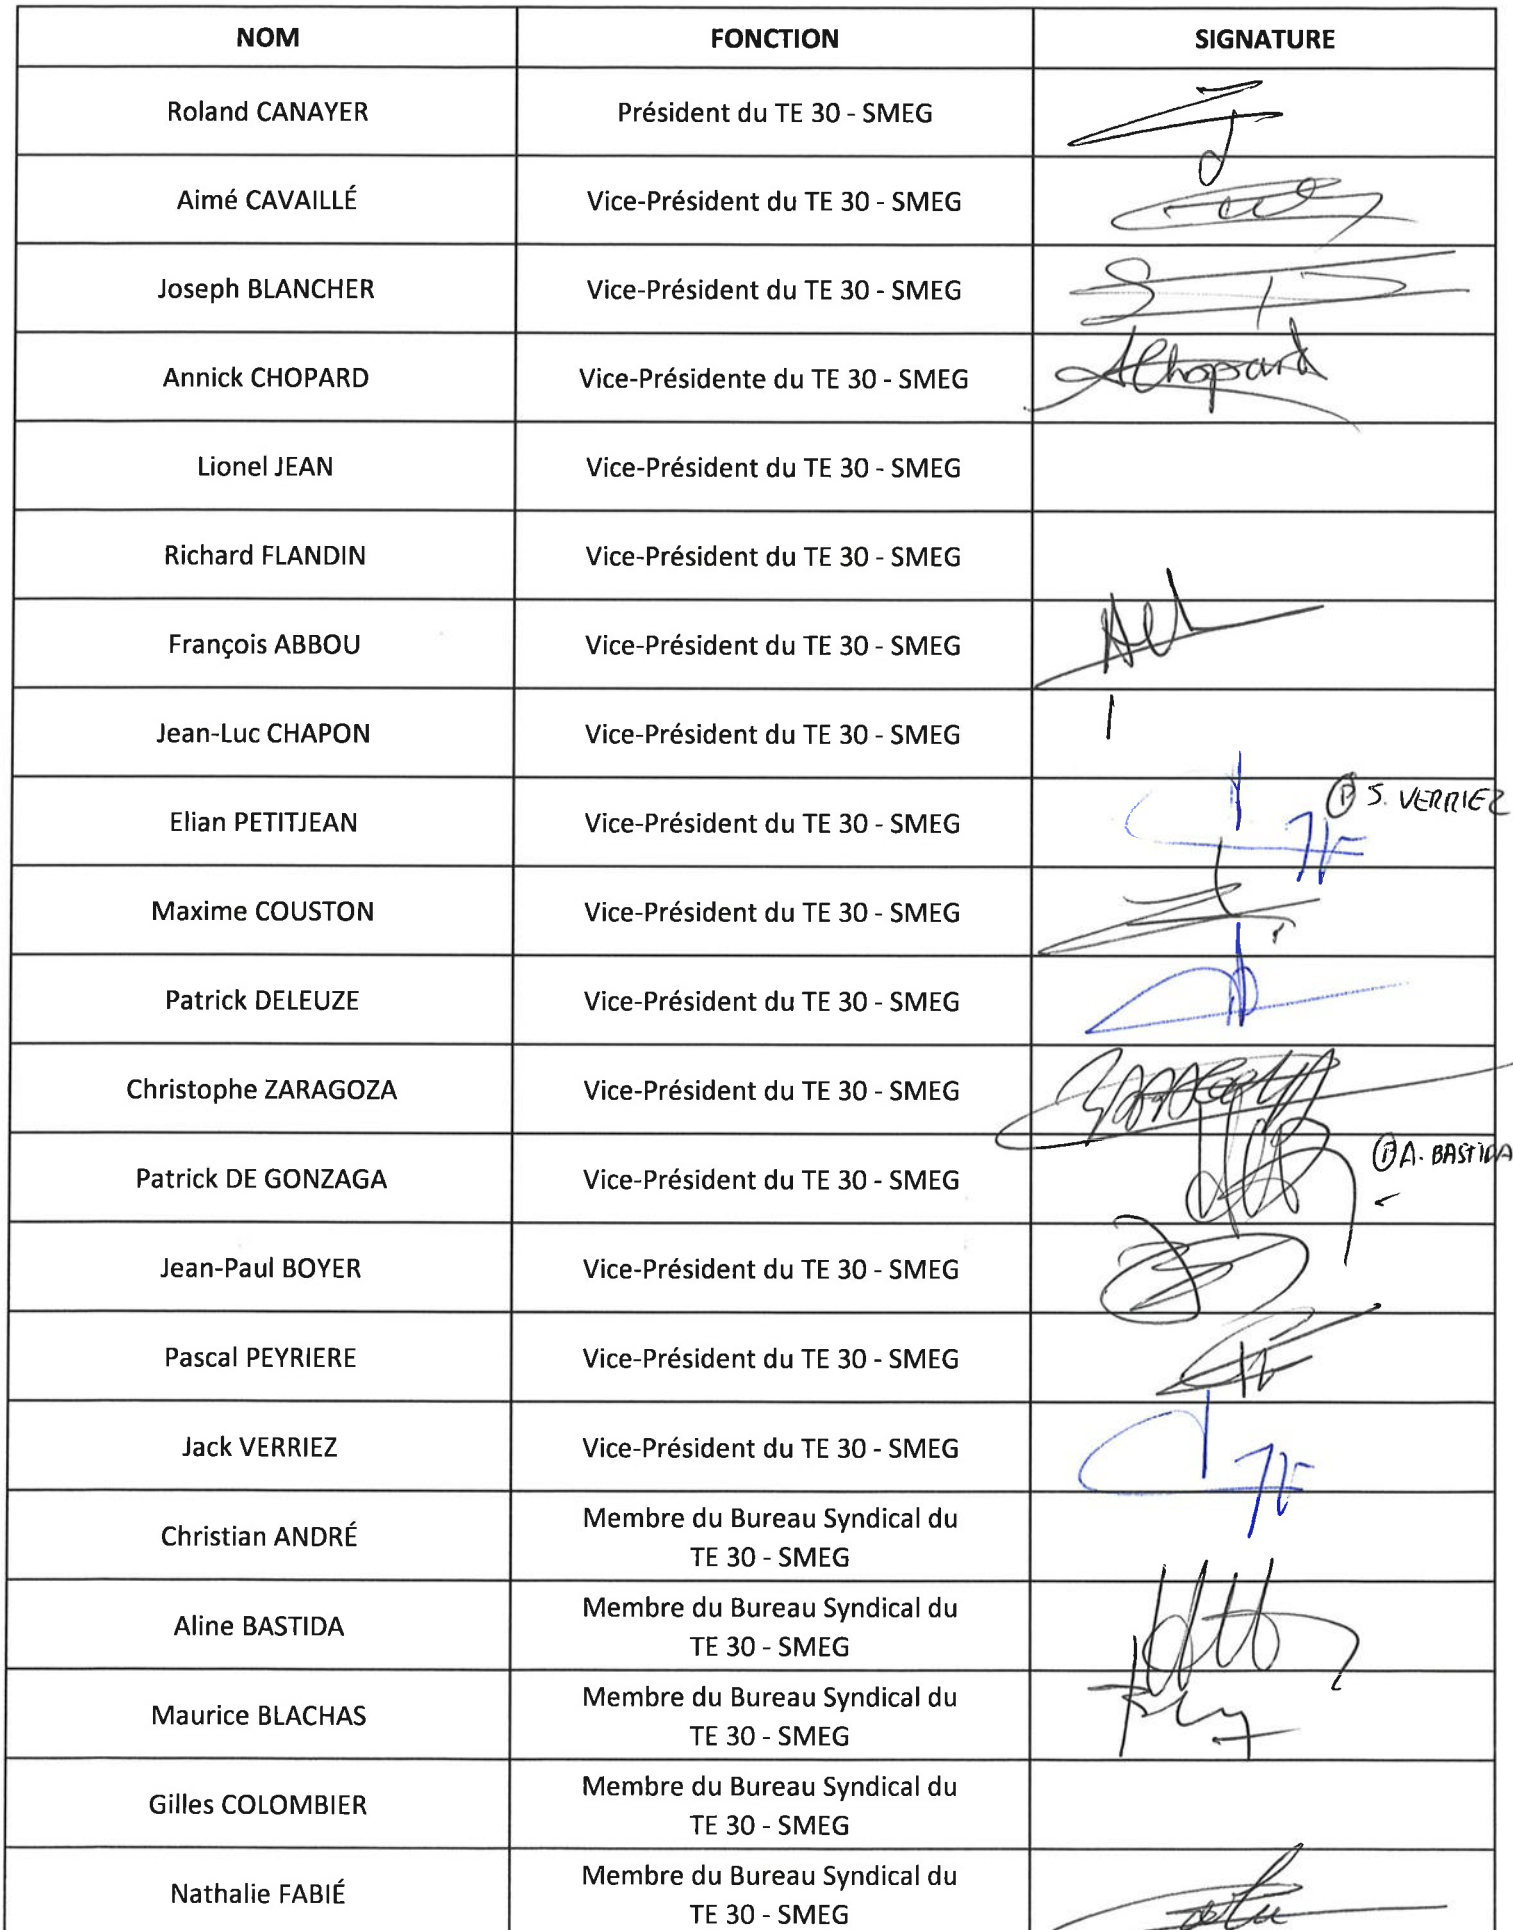 NOM FONCTION SIGNATURE
Roland CANAYER Président du TE 30 - SMEG
Aimé CAVAILLÉ Vice-Président du TE 30 - SMEG
Joseph BLANCHER Vice-Président du TE 30 - SMEG
Annick CHOPARD Vice-Présidente du TE 30 - SMEG AChopard
Lionel JEAN Vice-Président du TE 30 - SMEG
Richard FLANDIN Vice-Président du TE 30 - SMEG
François ABBOU Vice-Président du TE 30 - SMEG
Jean-Luc CHAPON Vice-Président du TE 30 - SMEG
Elian PETITJEAN Vice-Président du TE 30 - SMEG P J. VERRIEZ
Maxime COUSTON Vice-Président du TE 30 - SMEG
Patrick DELEUZE Vice-Président du TE 30 - SMEG
Christophe ZARAGOZA Vice-Président du TE 30 - SMEG
Patrick DE GONZAGA Vice-Président du TE 30 - SMEG P A. BASTIDA
Jean-Paul BOYER Vice-Président du TE 30 - SMEG
Pascal PEYRIERE Vice-Président du TE 30 - SMEG
Jack VERRIEZ Vice-Président du TE 30 - SMEG
Christian ANDRÉ Membre du Bureau Syndical du
TE 30 - SMEG
Aline BASTIDA Membre du Bureau Syndical du
TE 30 - SMEG
Maurice BLACHAS Membre du Bureau Syndical du
TE 30 - SMEG
Gilles COLOMBIER Membre du Bureau Syndical du
TE 30 - SMEG
Nathalie FABIÉ Membre du Bureau Syndical du
TE 30 - SMEG